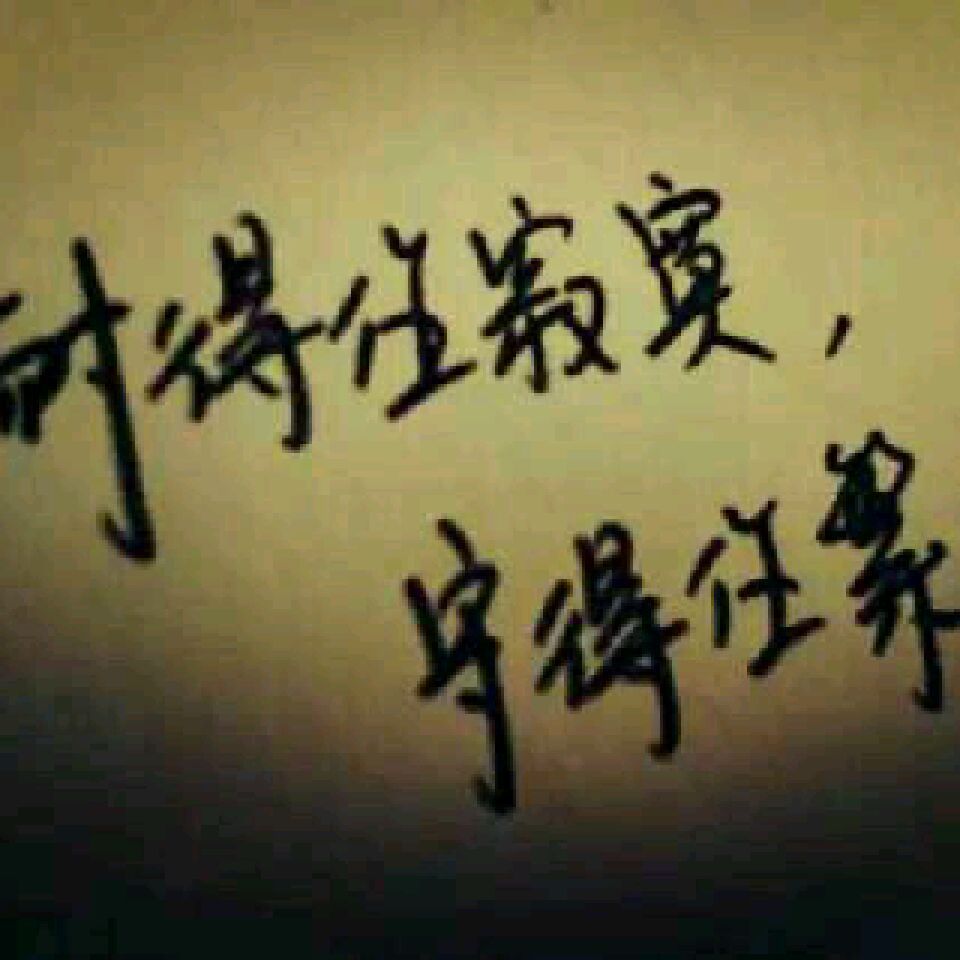 耐得住寂寞，
守得住繁